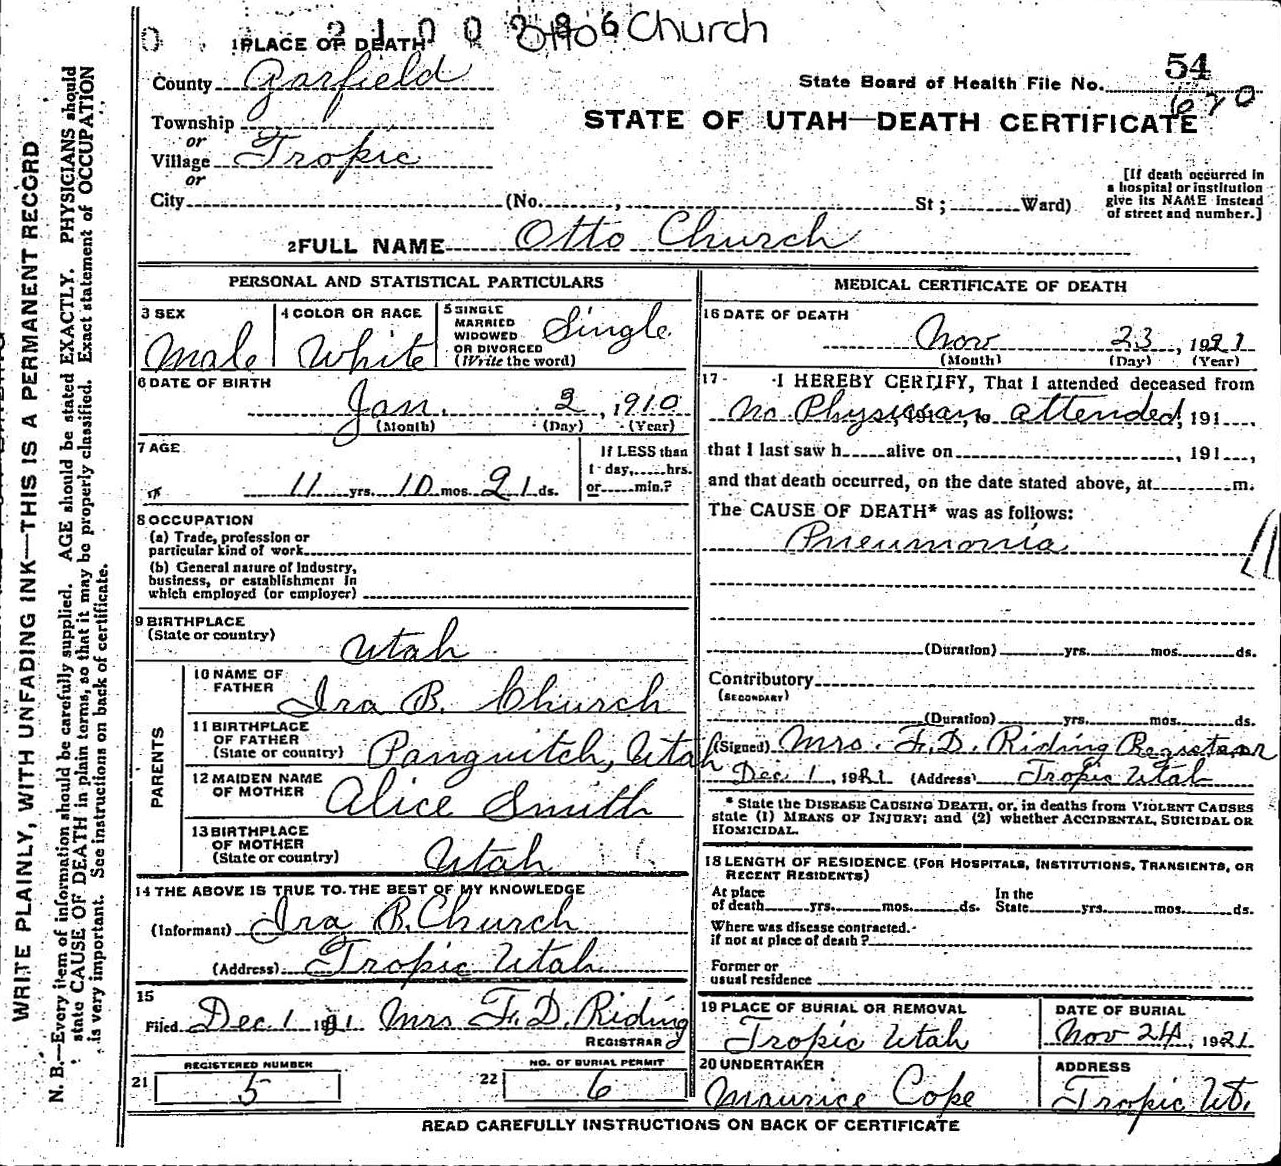 0 2100286 Otto Church
1 PLACE OF DEATH
County Garfield
State Board of Health File No. 54
670
Township
or
Village Tropic
or
STATE OF UTAH—DEATH CERTIFICATE
City (No. , St; Ward)
[If death occurred in
a hospital or institution
give its NAME instead
of street and number.]
2 FULL NAME Otto Church
PERSONAL AND STATISTICAL PARTICULARS
3 SEX
Male
4 COLOR OR RACE
White
5 SINGLE
MARRIED
WIDOWED
OR DIVORCED
(Write the word)
Single
6 DATE OF BIRTH
Jan. 2, 1910
(Month) (Day) (Year)
7 AGE
11 yrs. 10 mos. 21 ds.
If LESS than
1 day, hrs.
or min.?
8 OCCUPATION
(a) Trade, profession or
particular kind of work
(b) General nature of Industry,
business, or establishment in
which employed (or employer)
9 BIRTHPLACE
(State or country)
Utah
PARENTS
10 NAME OF
FATHER
Ira B. Church
11 BIRTHPLACE
OF FATHER
(State or country)
Panguitch, Utah
12 MAIDEN NAME
OF MOTHER
Alice Smith
13 BIRTHPLACE
OF MOTHER
(State or country)
Utah
14 THE ABOVE IS TRUE TO THE BEST OF MY KNOWLEDGE
(Informant) Ira B. Church
(Address) Tropic Utah
15
Filed Dec. 1 1921 Mrs F. D. Riding
REGISTRAR
21 REGISTERED NUMBER
5
22 NO. OF BURIAL PERMIT
6
MEDICAL CERTIFICATE OF DEATH
16 DATE OF DEATH
Nov 23, 1921
(Month) (Day) (Year)
17 I HEREBY CERTIFY, That I attended deceased from
No Physician attended, 191
that I last saw h alive on , 191 ,
and that death occurred, on the date stated above, at m.
The CAUSE OF DEATH* was as follows:
Pneumonia
(Duration) yrs. mos. ds.
Contributory
(SECONDARY)
(Duration) yrs. mos. ds.
(Signed) Mrs. F. D. Riding Registrar
Dec. 1, 1921 (Address) Tropic Utah
* State the DISEASE CAUSING DEATH, or, in deaths from VIOLENT CAUSES
state (1) MEANS OF INJURY; and (2) whether ACCIDENTAL, SUICIDAL OR
HOMICIDAL.
18 LENGTH OF RESIDENCE (FOR HOSPITALS, INSTITUTIONS, TRANSIENTS, OR
RECENT RESIDENTS)
At place
of death yrs. mos. ds.
In the
State yrs. mos. ds.
Where was disease contracted.
if not at place of death?
Former or
usual residence
19 PLACE OF BURIAL OR REMOVAL
Tropic Utah
DATE OF BURIAL
Nov 24, 1921
20 UNDERTAKER
Maurice Cope
ADDRESS
Tropic Ut.
READ CAREFULLY INSTRUCTIONS ON BACK OF CERTIFICATE
WRITE PLAINLY, WITH UNFADING INK—THIS IS A PERMANENT RECORD
N. B.—Every item of information should be carefully supplied. AGE should be stated EXACTLY. PHYSICIANS should
state CAUSE OF DEATH in plain terms, so that it may be properly classified. Exact statement of OCCUPATION
is very important. See instructions on back of certificate.